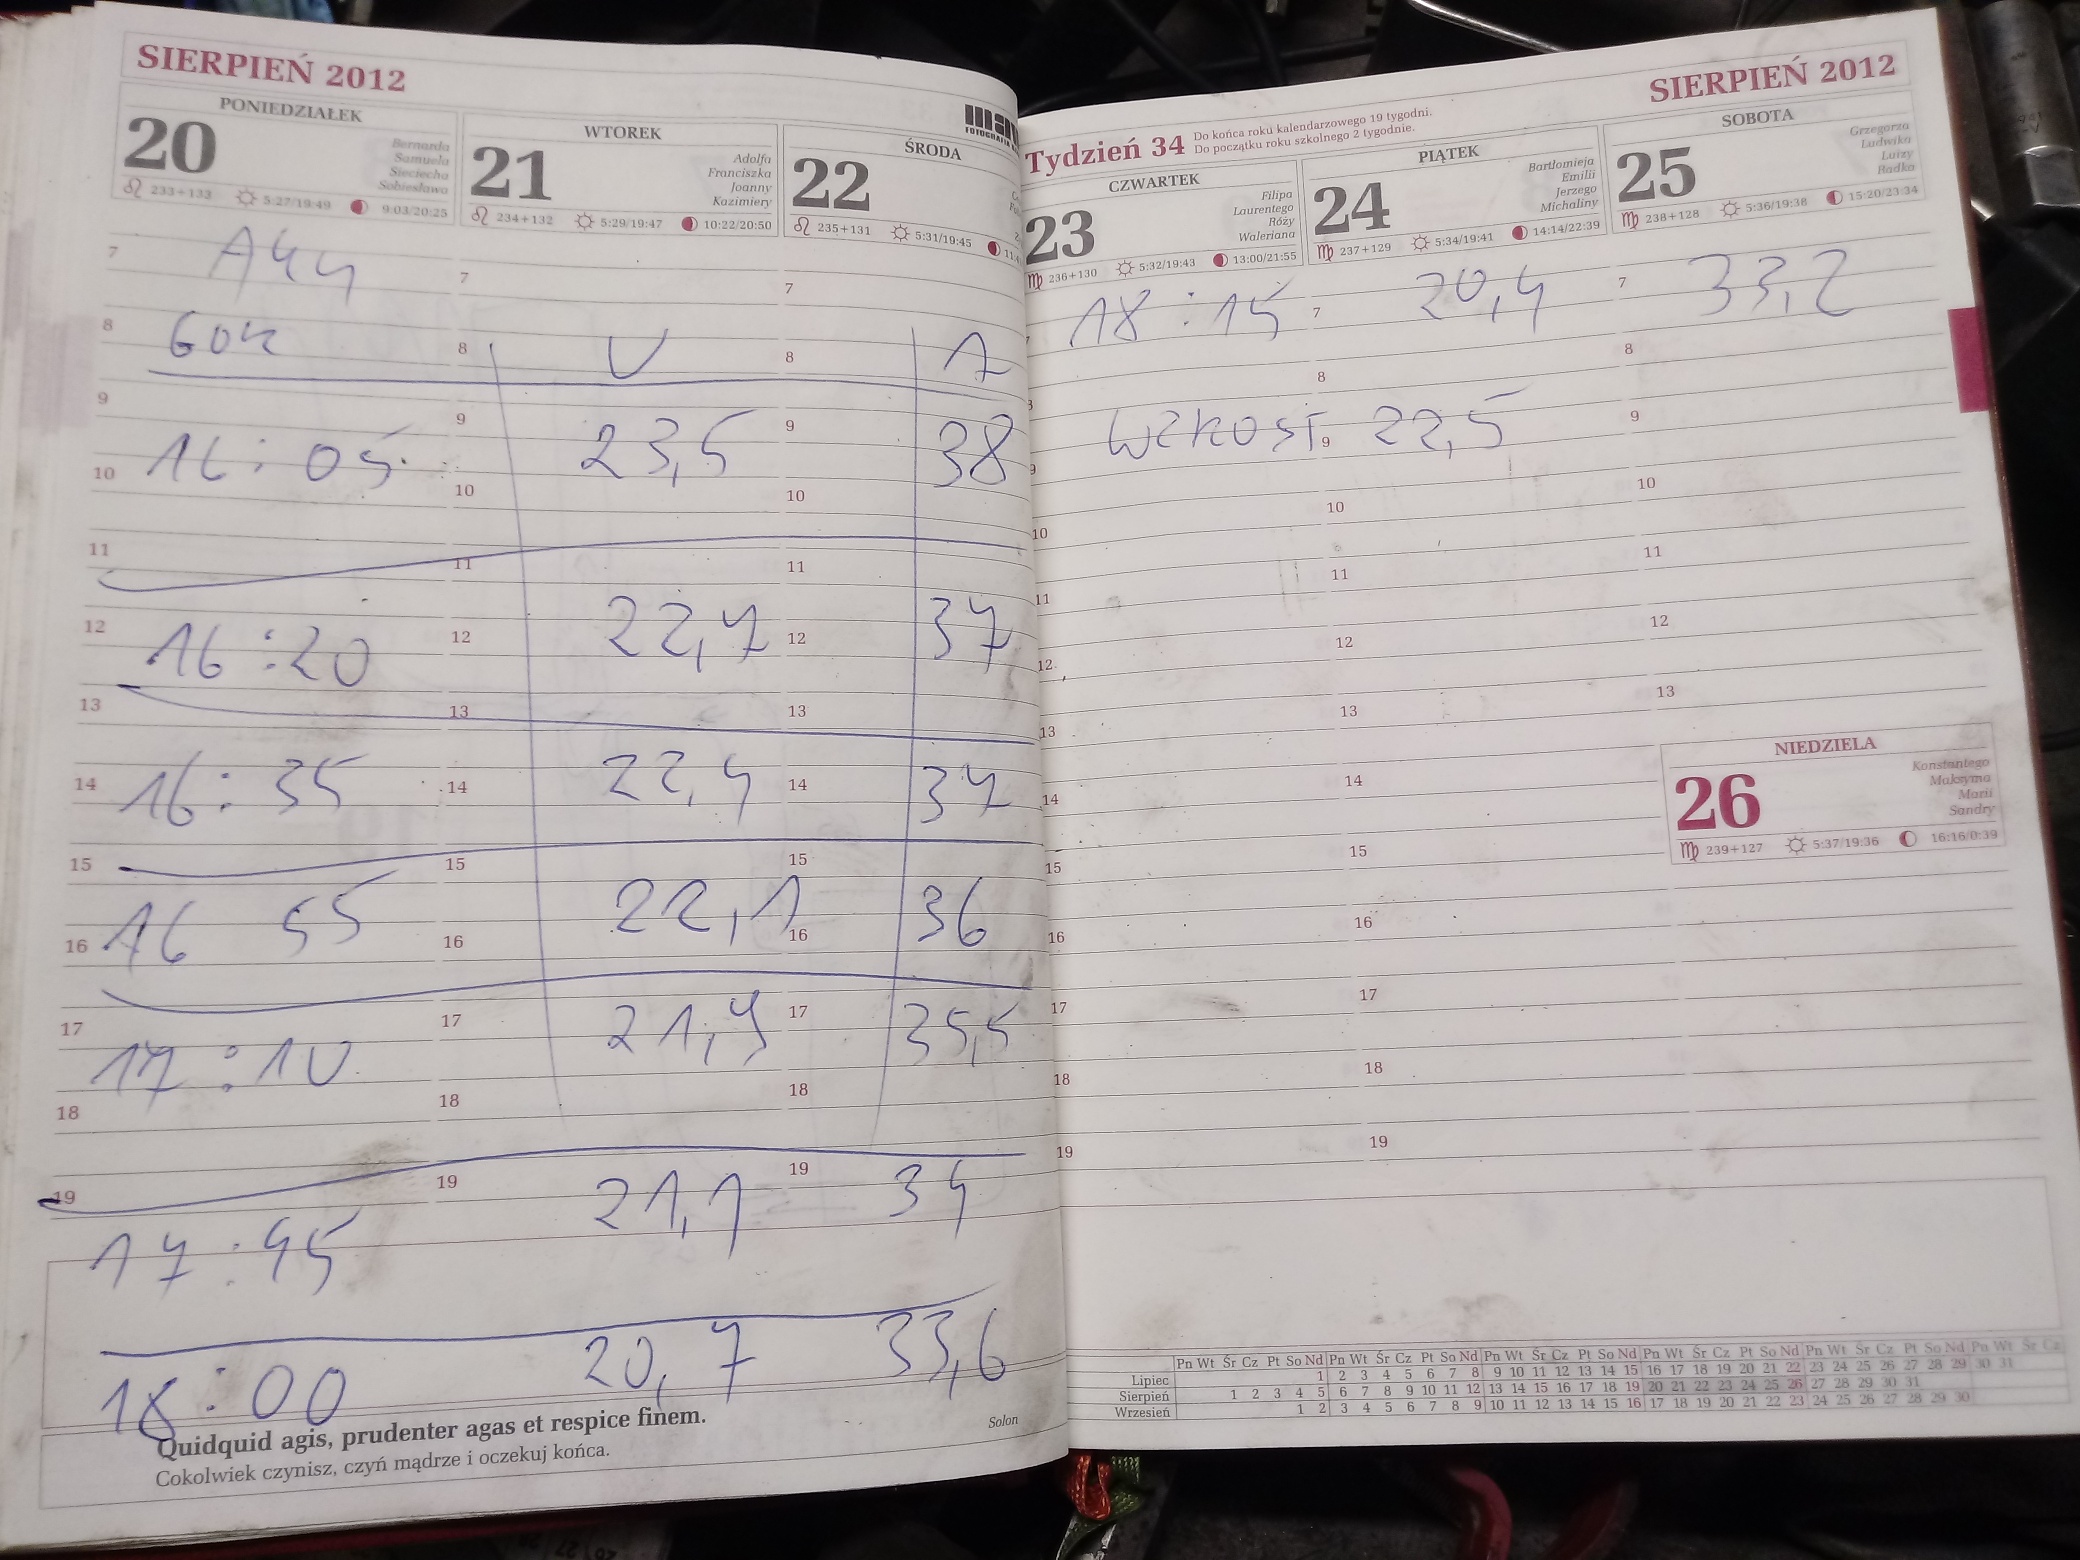 SIERPIEŃ 2012
PONIEDZIAŁEK
20
Bernarda
Samuela
Sieciecha
Sobiesława
233+133 5:27/19:49 9:03/20:25
WTOREK
21
Adolfa
Franciszka
Joanny
Kazimiery
234+132 5:29/19:47 10:22/20:50
ŚRODA
22
235+131 5:31/19:45
A44
GON U A
16:05 23,5 38
16:20 22,7 37
16:35 22,4 37
16 55 22,1 36
17:10 21,9 35,5
17:45 21,1 34
18:00 20,7 33,6
7 7 7
8 8 8
9 9 9
10 10 10
11 11 11
12 12 12
13 13 13
14 14 14
15 15 15
16 16 16
17 17 17
18 18 18
19 19 19
Quidquid agis, prudenter agas et respice finem. Solon
Cokolwiek czynisz, czyń mądrze i oczekuj końca.
SIERPIEŃ 2012
Tydzień 34
Do końca roku kalendarzowego 19 tygodni.
Do początku roku szkolnego 2 tygodnie.
CZWARTEK
23
Filipa
Laurentego
Róży
Waleriana
236+130 5:32/19:43 13:00/21:55
PIĄTEK
24
Bartłomieja
Emilii
Jerzego
Michaliny
237+129 5:34/19:41 14:14/22:39
SOBOTA
25
Grzegorza
Ludwika
Luizy
Radka
238+128 5:36/19:38 15:20/23:34
18:15 20,4 33,2
WZROST 22,5
7 7
8 8
9 9 9
10 10 10
11 11 11
12 12 12
13 13 13
14 14
15 15
16 16
17 17
18 18
19 19
NIEDZIELA
26
Konstantego
Maksyma
Marii
Sandry
239+127 5:37/19:36 16:16/0:39
Pn Wt Śr Cz Pt So Nd Pn Wt Śr Cz Pt So Nd Pn Wt Śr Cz Pt So Nd Pn Wt Śr Cz Pt So Nd Pn Wt Śr Cz Pt So Nd Pn Wt Śr Cz
Lipiec 1 2 3 4 5 6 7 8 9 10 11 12 13 14 15 16 17 18 19 20 21 22 23 24 25 26 27 28 29 30 31
Sierpień 1 2 3 4 5 6 7 8 9 10 11 12 13 14 15 16 17 18 19 20 21 22 23 24 25 26 27 28 29 30 31
Wrzesień 1 2 3 4 5 6 7 8 9 10 11 12 13 14 15 16 17 18 19 20 21 22 23 24 25 26 27 28 29 30